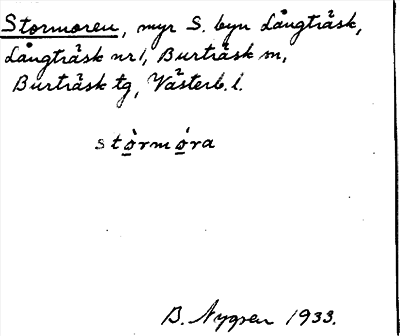 Stormoren, myr S. byn Långträsk,
Långträsk nr 1, Burträsk sn,
Burträsk tg, Västerb. l.
stò̲rmó̲ra
B. Nygren 1933.